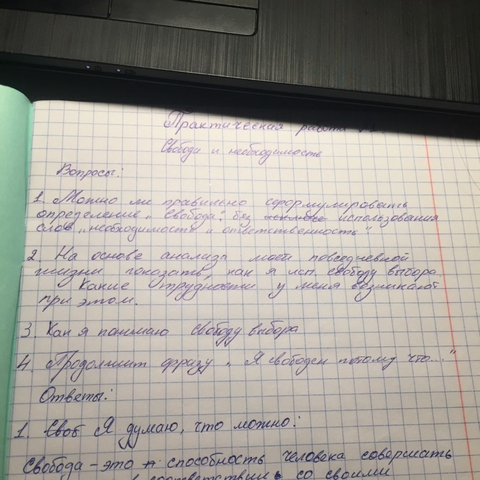 Практическая работа
Свобода и необходимость
Вопросы:
1. Можно ли правильно сформулировать
определение „Свобода", без использования
слов „необходимость и ответственность"
2. На основе анализа моей повседневной
жизни показать, как я исп. свободу выбора
Какие трудности у меня возникают
при этом.
3. Как я понимаю свободу выбора
4. Продолжит фразу „Я свободен потому что..."
Ответы:
1. Своб Я думаю, что можно:
Свобода - это способность человека совершать
в соответствии со своими